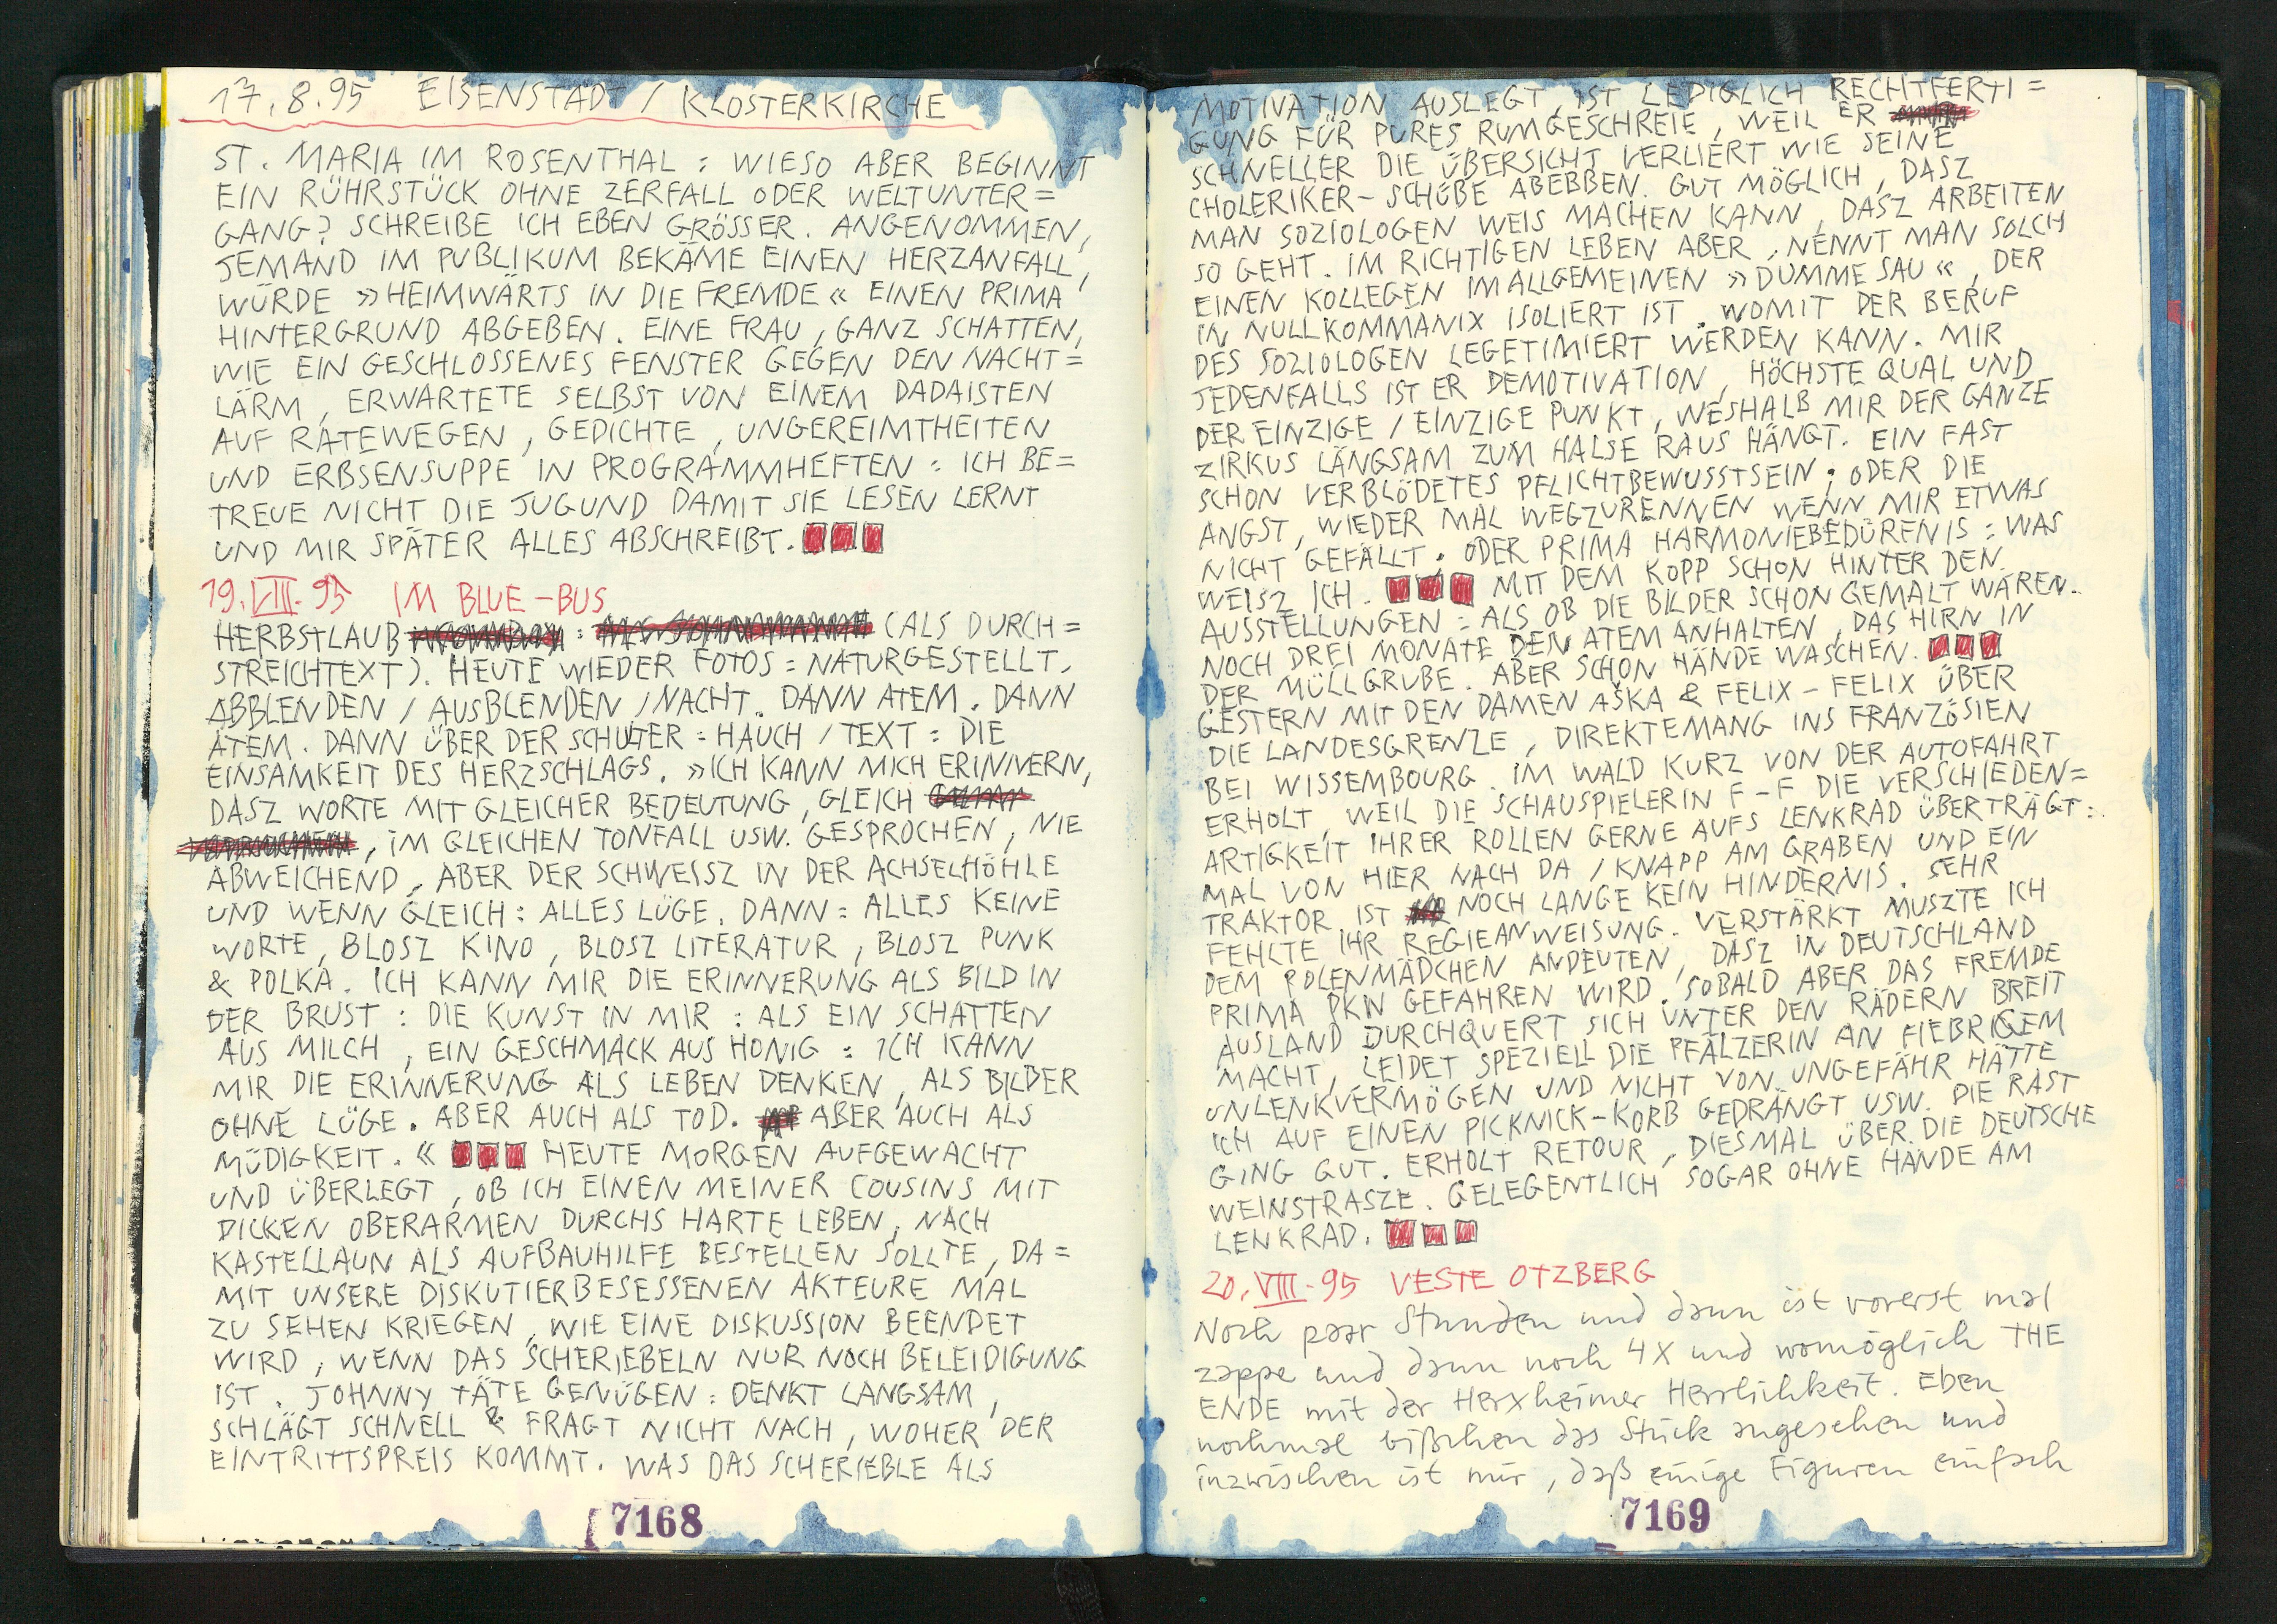 17.8.95 EISENSTADT / KLOSTERKIRCHE
ST. MARIA IM ROSENTHAL : WIESO ABER BEGINNT
EIN RÜHRSTÜCK OHNE ZERFALL ODER WELTUNTER=
GANG? SCHREIBE ICH EBEN GRÖSSER. ANGENOMMEN,
JEMAND IM PUBLIKUM BEKÄME EINEN HERZANFALL,
WÜRDE »HEIMWÄRTS IN DIE FREMDE« EINEN PRIMA
HINTERGRUND ABGEBEN. EINE FRAU, GANZ SCHATTEN,
WIE EIN GESCHLOSSENES FENSTER GEGEN DEN NACHT=
LÄRM, ERWARTETE SELBST VON EINEM DADAISTEN
AUF RATEWEGEN, GEDICHTE, UNGEREIMTHEITEN
UND ERBSENSUPPE IN PROGRAMMHEFTEN : ICH BE=
TREUE NICHT DIE JUGUND DAMIT SIE LESEN LERNT
UND MIR SPÄTER ALLES ABSCHREIBT.
19.VIII.95 IM BLUE-BUS
HERBSTLAUB : (ALS DURCH=
STREICHTEXT). HEUTE WIEDER FOTOS : NATURGESTELLT,
ABBLENDEN / AUSBLENDEN / NACHT. DANN ATEM. DANN
ATEM. DANN ÜBER DER SCHULTER : HAUCH / TEXT : DIE
EINSAMKEIT DES HERZSCHLAGS. »ICH KANN MICH ERINNERN,
DASZ WORTE MIT GLEICHER BEDEUTUNG, GLEICH
, IM GLEICHEN TONFALL USW. GESPROCHEN, NIE
ABWEICHEND, ABER DER SCHWEISZ IN DER ACHSELHÖHLE
UND WENN GLEICH : ALLES LÜGE. DANN : ALLES KEINE
WORTE, BLOSZ KINO, BLOSZ LITERATUR, BLOSZ PUNK
& POLKA. ICH KANN MIR DIE ERINNERUNG ALS BILD IN
DER BRUST : DIE KUNST IN MIR : ALS EIN SCHATTEN
AUS MILCH, EIN GESCHMACK AUS HONIG : ICH KANN
MIR DIE ERINNERUNG ALS LEBEN DENKEN, ALS BILDER
OHNE LÜGE. ABER AUCH ALS TOD. ABER AUCH ALS
MÜDIGKEIT.« HEUTE MORGEN AUFGEWACHT
UND ÜBERLEGT, OB ICH EINEN MEINER COUSINS MIT
DICKEN OBERARMEN DURCHS HARTE LEBEN, NACH
KASTELLAUN ALS AUFBAUHILFE BESTELLEN SOLLTE, DA=
MIT UNSERE DISKUTIERBESESSENEN AKTEURE MAL
ZU SEHEN KRIEGEN, WIE EINE DISKUSSION BEENDET
WIRD, WENN DAS SCHERIEBELN NUR NOCH BELEIDIGUNG
IST. JOHNNY TÄTE GENÜGEN : DENKT LANGSAM,
SCHLÄGT SCHNELL & FRAGT NICHT NACH, WOHER DER
EINTRITTSPREIS KOMMT. WAS DAS SCHERIEBLE ALS
7168
MOTIVATION AUSLEGT, IST LEDIGLICH RECHTFERTI=
GUNG FÜR PURES RUMGESCHREIE, WEIL ER
SCHNELLER DIE ÜBERSICHT VERLIERT WIE SEINE
CHOLERIKER-SCHÜBE ABEBBEN. GUT MÖGLICH, DASZ
MAN SOZIOLOGEN WEIS MACHEN KANN, DASZ ARBEITEN
SO GEHT. IM RICHTIGEN LEBEN ABER, NENNT MAN SOLCH
EINEN KOLLEGEN IM ALLGEMEINEN »DUMME SAU«, DER
IN NULLKOMMANIX ISOLIERT IST. WOMIT DER BERUF
DES SOZIOLOGEN LEGETIMIERT WERDEN KANN. MIR
JEDENFALLS IST ER DEMOTIVATION, HÖCHSTE QUAL UND
DER EINZIGE / EINZIGE PUNKT, WESHALB MIR DER GANZE
ZIRKUS LÄNGSAM ZUM HALSE RAUS HÄNGT. EIN FAST
SCHON VERBLÖDETES PFLICHTBEWUSSTSEIN; ODER DIE
ANGST, WIEDER MAL WEGZURENNEN WENN MIR ETWAS
NICHT GEFÄLLT. ODER PRIMA HARMONIEBEDÜRFNIS : WAS
WEISZ ICH. MIT DEM KOPP SCHON HINTER DEN
AUSSTELLUNGEN : ALS OB DIE BILDER SCHON GEMALT WÄREN.
NOCH DREI MONATE DEN ATEM ANHALTEN, DAS HIRN IN
DER MÜLLGRUBE. ABER SCHON HÄNDE WASCHEN.
GESTERN MIT DEN DAMEN AŠKA & FELIX-FELIX ÜBER
DIE LANDESGRENZE, DIREKTEMANG INS FRANZÖSIEN
BEI WISSEMBOURG. IM WALD KURZ VON DER AUTOFAHRT
ERHOLT, WEIL DIE SCHAUSPIELERIN F-F DIE VERSCHIEDEN=
ARTIGKEIT IHRER ROLLEN GERNE AUFS LENKRAD ÜBERTRÄGT :
MAL VON HIER NACH DA / KNAPP AM GRABEN UND EIN
TRAKTOR IST NOCH LANGE KEIN HINDERNIS. SEHR
FEHLTE IHR REGIEANWEISUNG. VERSTÄRKT MUSZTE ICH
DEM POLENMÄDCHEN ANDEUTEN, DASZ IN DEUTSCHLAND
PRIMA PKW GEFAHREN WIRD. SOBALD ABER DAS FREMDE
AUSLAND DURCHQUERT SICH UNTER DEN RÄDERN BREIT
MACHT, LEIDET SPEZIELL DIE PFÄLZERIN AN FIEBRIGEM
UNLENKVERMÖGEN UND NICHT VON UNGEFÄHR HÄTTE
ICH AUF EINEN PICKNICK-KORB GEDRÄNGT USW. DIE RAST
GING GUT. ERHOLT RETOUR, DIESMAL ÜBER DIE DEUTSCHE
WEINSTRASZE. GELEGENTLICH SOGAR OHNE HÄNDE AM
LENKRAD.
20.VIII.95 VESTE OTZBERG
Noch paar Stunden und dann ist vorerst mal
zappe und dann noch 4X und womöglich THE
ENDE mit der Herxheimer Herrlichkeit. Eben
nochmal bißchen das Stück angesehen und
inzwischen ist mir, daß einige Figuren einfach
7169